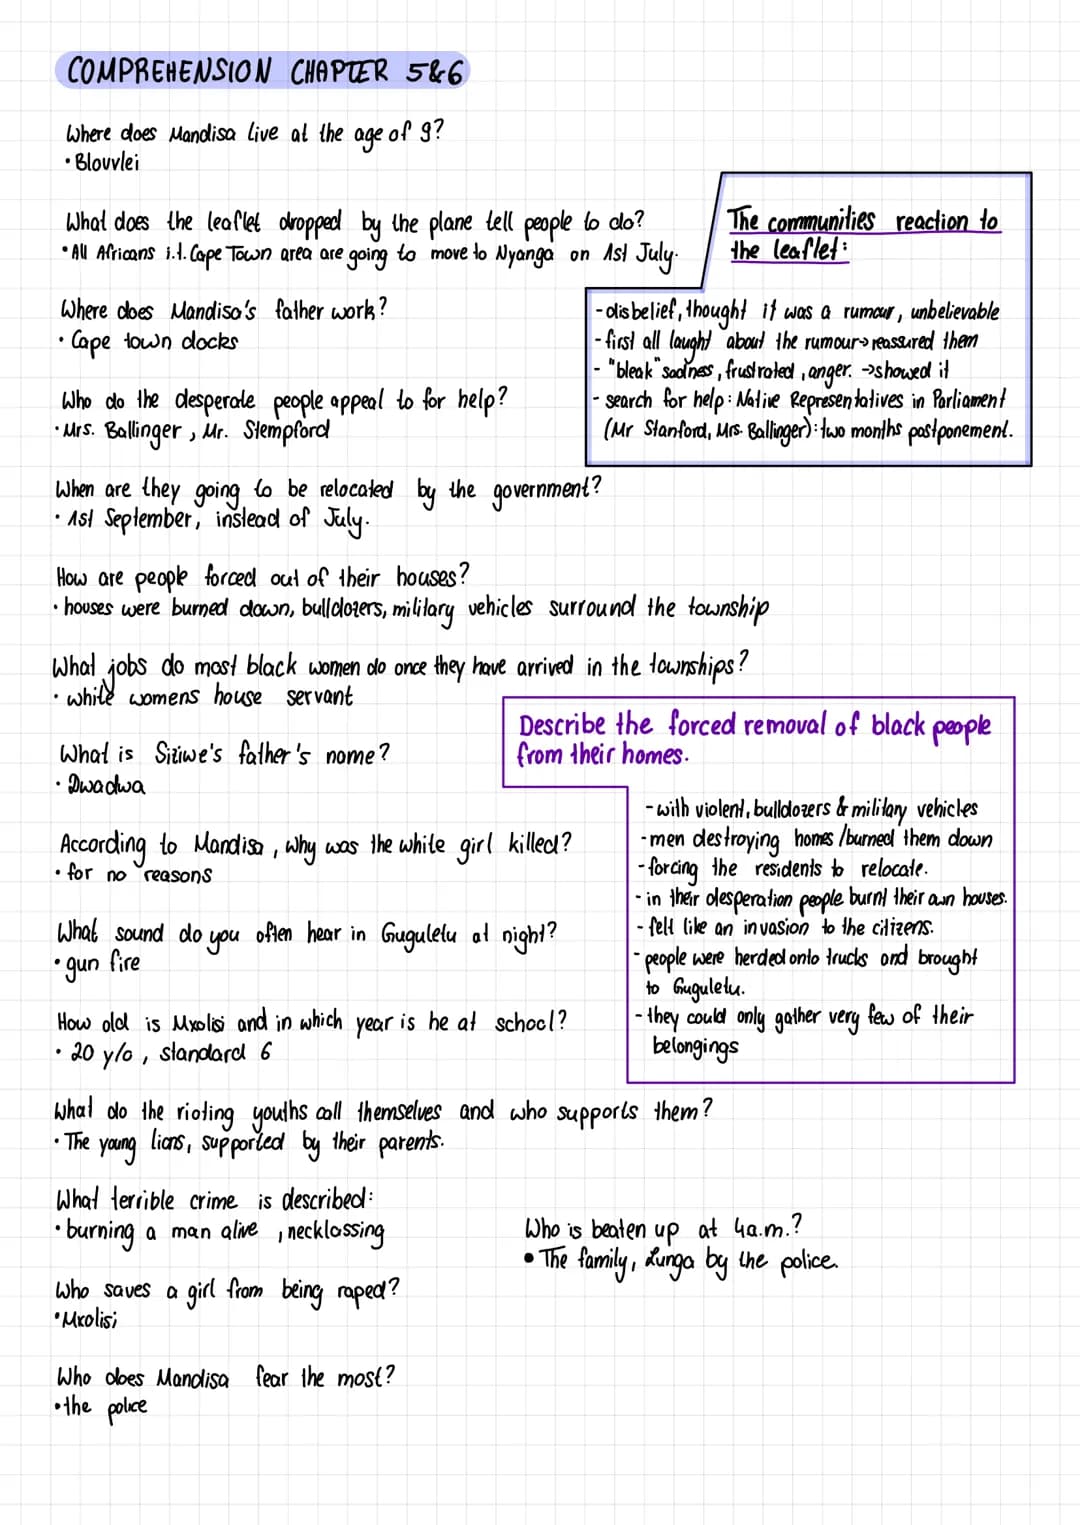 COMPREHENSION CHAPTER 5&6
Where does Mandisa live at the age of 9?
• Blouvlei
What does the leaflet dropped by the plane tell people to do?
• All Africans i.t. Cape Town area are going to move to Nyanga on 1st July.
The communities reaction to
the leaflet:
- disbelief, thought it was a rumour, unbelievable
- first all laught about the rumour→reassured them
- "bleak" sadness, frustrated, anger. →showed it
- search for help: Native Representatives in Parliament
(Mr Stanford, Mrs. Ballinger): two months postponement.
Where does Mandisa's father work?
• Cape town docks
Who do the desperate people appeal to for help?
• Mrs. Ballinger, Mr. Stempford
When are they going to be relocated by the government?
• 1st September, instead of July.
How are people forced out of their houses?
• houses were burned down, bulldozers, military vehicles surround the township
What jobs do most black women do once they have arrived in the townships?
• white womens house servant
What is Siziwe's father's name?
• Dwadwa
Describe the forced removal of black people
from their homes.
- with violent, bulldozers & military vehicles
- men destroying homes / burned them down
- forcing the residents to relocate.
- in their desperation people burnt their own houses.
- felt like an invasion to the citizens.
- people were herded onto trucks and brought
to Guguletu.
- they could only gather very few of their
belongings
According to Mandisa, why was the white girl killed?
• for no reasons
What sound do you often hear in Guguletu at night?
• gun fire
How old is Mxolisi and in which year is he at school?
• 20 y/o, standard 6
What do the rioting youths call themselves and who supports them?
• The young lions, supported by their parents.
What terrible crime is described:
• burning a man alive, necklassing
Who is beaten up at 4a.m.?
• The family, Lunga by the police.
Who saves a girl from being raped?
• Mxolisi
Who does Mandisa fear the most?
• the police